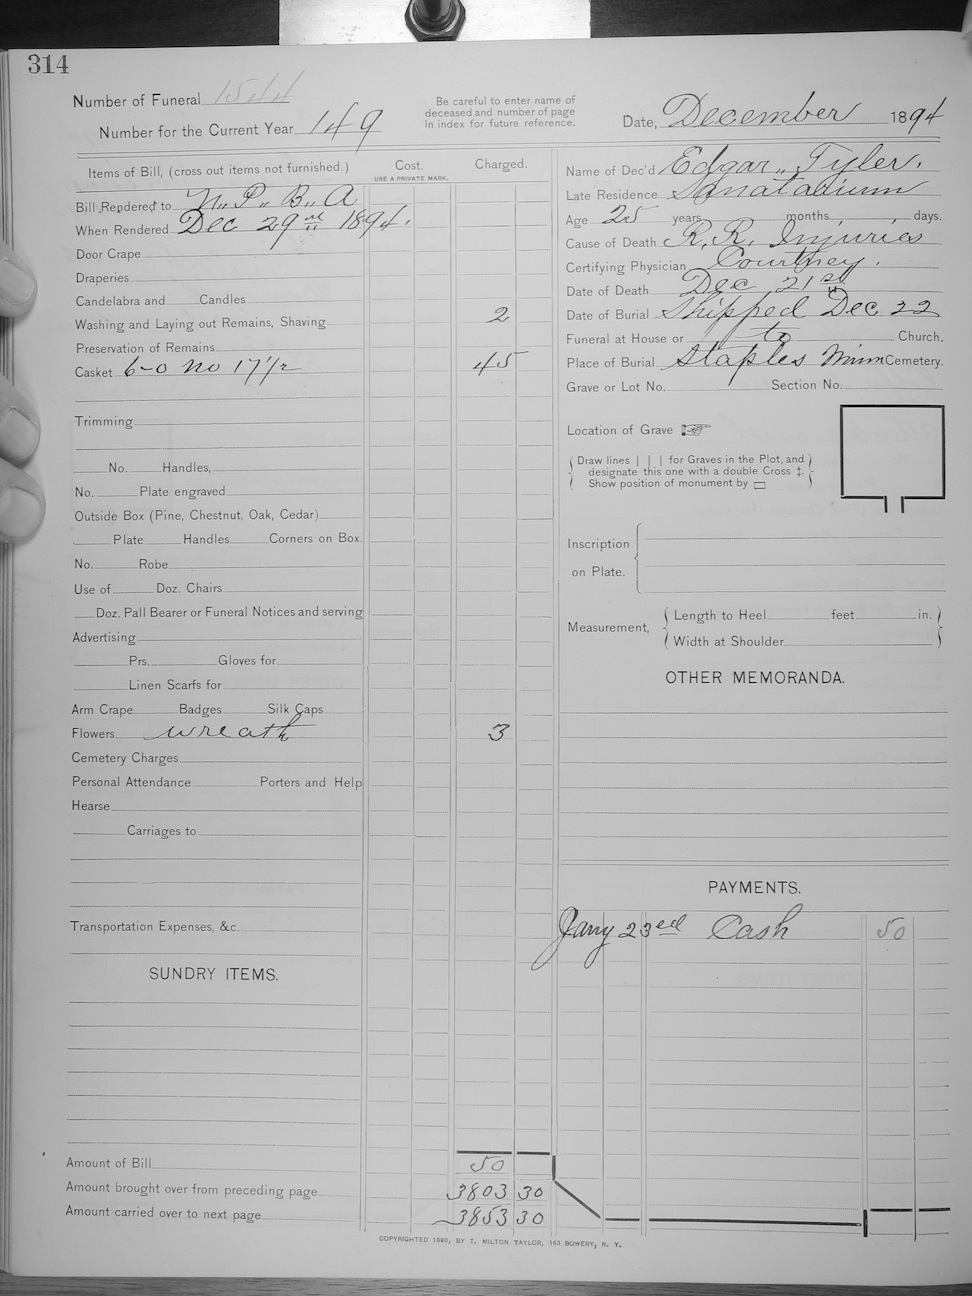 314
Number of Funeral 1544
Number for the Current Year 149
Be careful to enter name of
deceased and number of page
In index for future reference.
Date, December 1894
Items of Bill, (cross out items not furnished.)
Cost.
USE A PRIVATE MARK.
Charged.
Bill Rendered to N. P. B. A
When Rendered Dec 29 1894.
Door Crape
Draperies
Candelabra and Candles
Washing and Laying out Remains, Shaving 2
Preservation of Remains
Casket 6-0 No 17 1/2 45
Trimming
No. Handles,
No. Plate engraved
Outside Box (Pine, Chestnut, Oak, Cedar)
Plate Handles Corners on Box.
No. Robe
Use of Doz. Chairs
Doz. Pall Bearer or Funeral Notices and serving
Advertising
Prs. Gloves for
Linen Scarfs for
Arm Crape Badges Silk Caps
Flowers wreath 3
Cemetery Charges
Personal Attendance Porters and Help
Hearse
Carriages to
Transportation Expenses, &c.
SUNDRY ITEMS.
Amount of Bill 50
Amount brought over from preceding page 3803 30
Amount carried over to next page 3853 30
Name of Dec'd Edgar Tyler.
Late Residence Sanatarium
Age 25 years months, days.
Cause of Death R. R. Injuries
Certifying Physician Courtney.
Date of Death Dec 21st
Date of Burial Shipped Dec 22
Funeral at House or to Church.
Place of Burial Staples Minn Cemetery.
Grave or Lot No. Section No.
Location of Grave
Draw lines | | | for Graves in the Plot, and
designate this one with a double Cross ‡.
Show position of monument by ▭
Inscription
on Plate.
Measurement, Length to Heel feet in.
Width at Shoulder
OTHER MEMORANDA.
PAYMENTS.
Jany 23rd Cash 50
COPYRIGHTED 1890, BY T. MILTON TAYLOR, 163 BOWERY, N. Y.